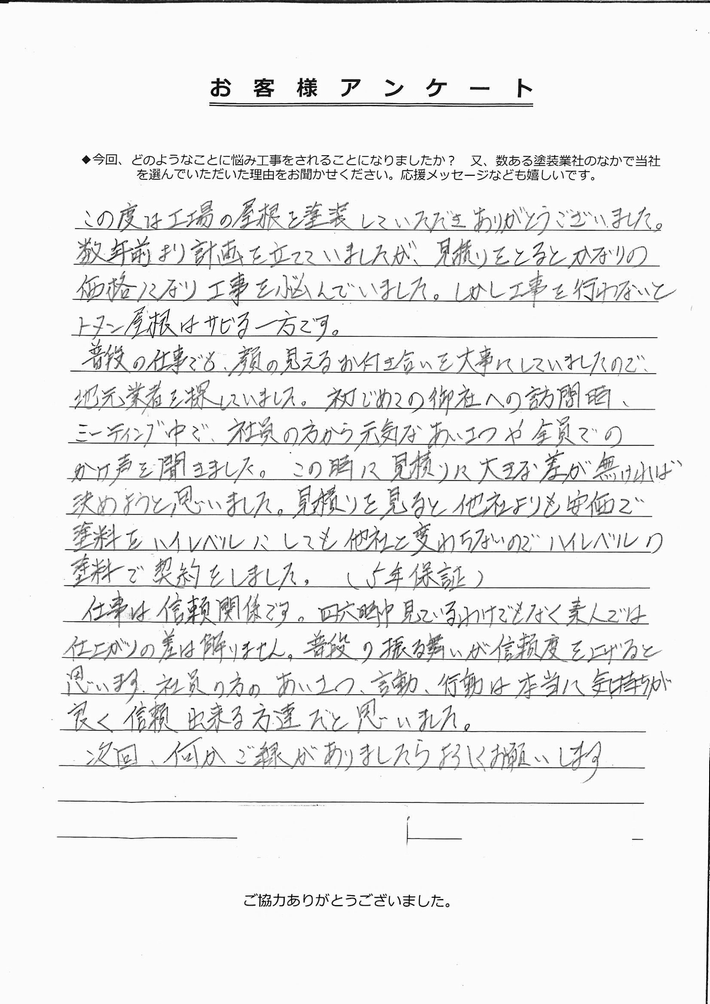 お客様アンケート
◆今回、どのようなことに悩み工事をされることになりましたか？　又、数ある塗装業社のなかで当社
を選んでいただいた理由をお聞かせください。応援メッセージなども嬉しいです。
この度は工場の屋根を塗装していただきありがとうございました。
数年前より計画を立てていましたが、見積りをとるとかなりの
価格になり工事を悩んでいました。しかし工事を行わないと
トタン屋根はサビる一方です。
普段の仕事でも、顔の見えるお付き合いを大事にしていましたので、
地元業者を探していました。初じめての御社への訪問時、
ミーティング中で、社員の方から元気なあいさつや全員での
かけ声を聞きました。この時に見積りに大きな差が無ければ
決めようと思いました。見積りを見ると他社よりも安価で
塗料をハイレベルにしても他社と変わらないのでハイレベルの
塗料で契約をしました。（5年保証）
仕事は信頼関係です。四六時中見ているわけでもなく素人では
仕上がりの差は解りません。普段の振る舞いが信頼度を上げると
思います。社員の方のあいさつ、言動、行動は本当に気持ちが
良く信頼出来る方達だと思いました。
次回、何かご縁がありましたらよろしくお願いします
ご協力ありがとうございました。